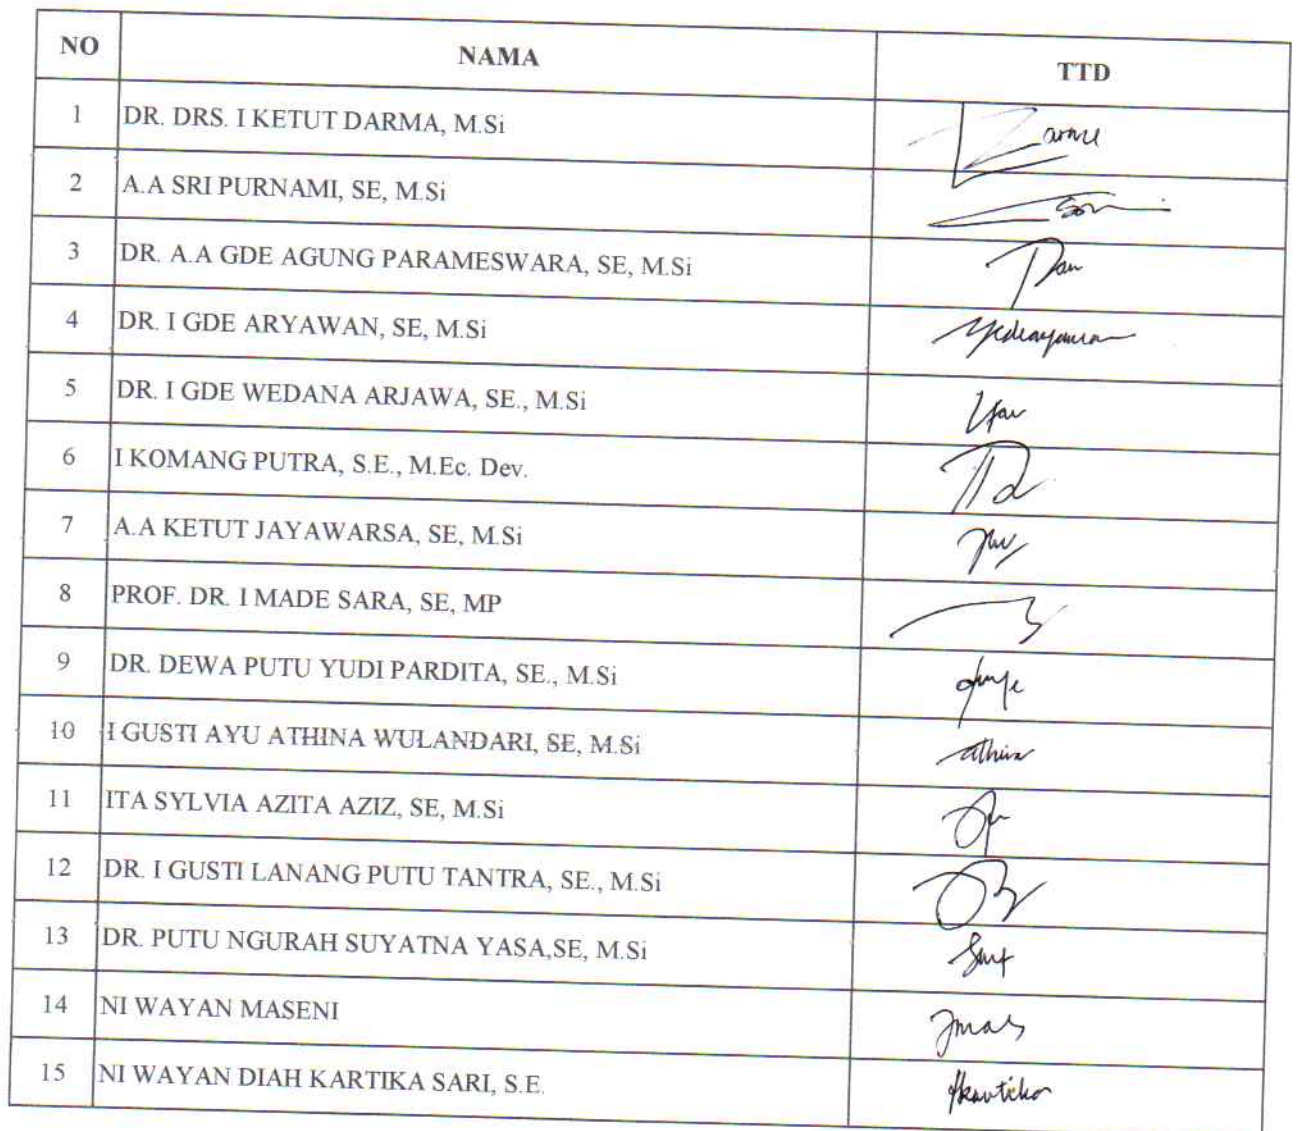 NO NAMA TTD
1 DR. DRS. I KETUT DARMA, M.Si
2 A.A SRI PURNAMI, SE, M.Si
3 DR. A.A GDE AGUNG PARAMESWARA, SE, M.Si
4 DR. I GDE ARYAWAN, SE, M.Si
5 DR. I GDE WEDANA ARJAWA, SE., M.Si
6 I KOMANG PUTRA, S.E., M.Ec. Dev.
7 A.A KETUT JAYAWARSA, SE, M.Si
8 PROF. DR. I MADE SARA, SE, MP
9 DR. DEWA PUTU YUDI PARDITA, SE., M.Si
10 I GUSTI AYU ATHINA WULANDARI, SE, M.Si athina
11 ITA SYLVIA AZITA AZIZ, SE, M.Si
12 DR. I GUSTI LANANG PUTU TANTRA, SE., M.Si
13 DR. PUTU NGURAH SUYATNA YASA,SE, M.Si
14 NI WAYAN MASENI
15 NI WAYAN DIAH KARTIKA SARI, S.E.